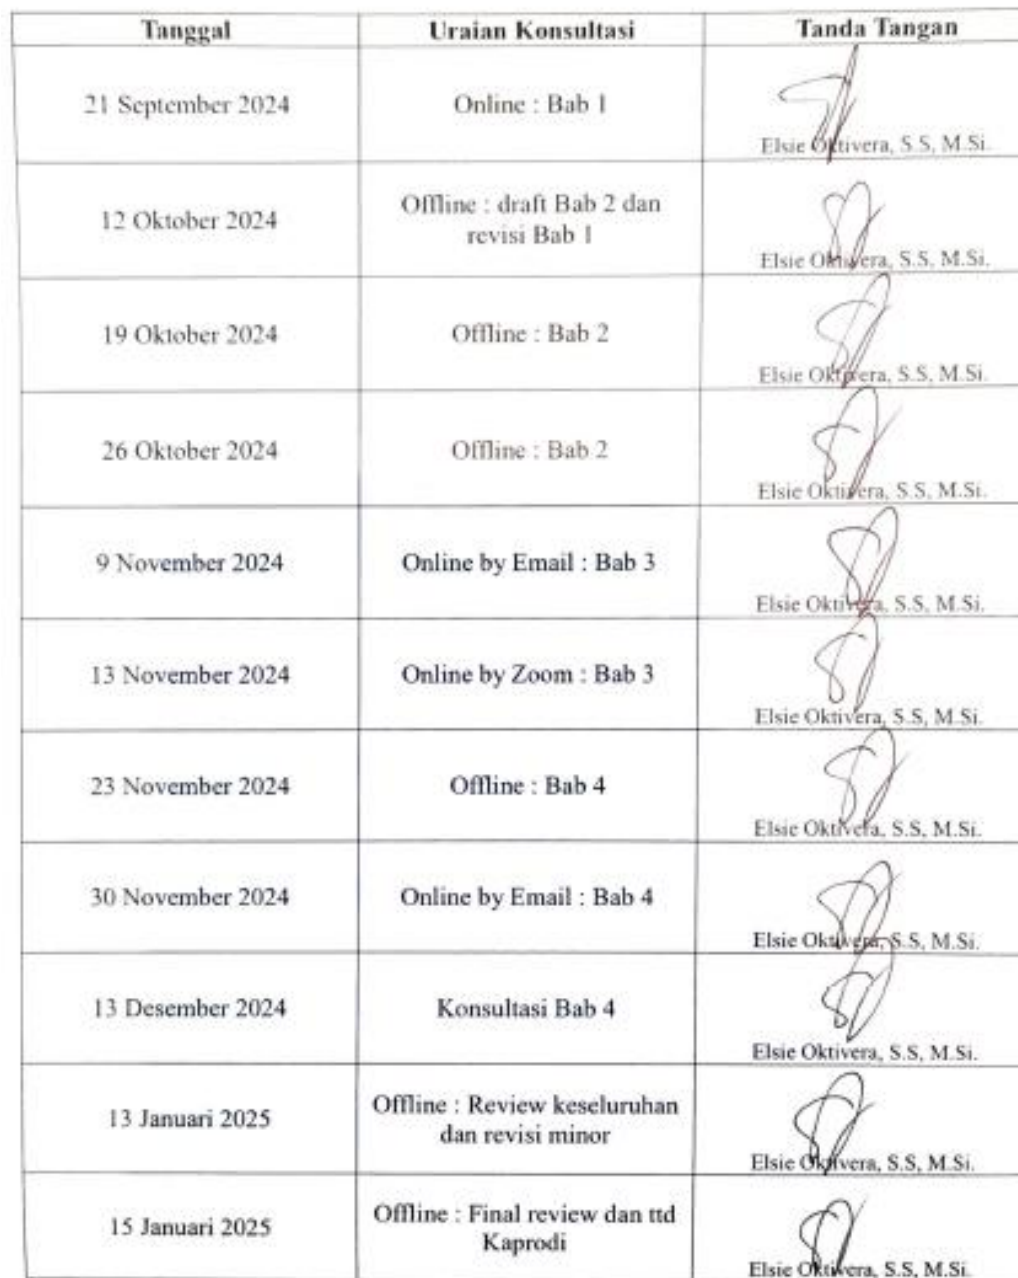 Tanggal Uraian Konsultasi Tanda Tangan
21 September 2024 Online : Bab 1
Elsie Oktivera, S.S, M.Si.
12 Oktober 2024 Offline : draft Bab 2 dan
revisi Bab 1
Elsie Oktivera, S.S, M.Si.
19 Oktober 2024 Offline : Bab 2
Elsie Oktivera, S.S, M.Si.
26 Oktober 2024 Offline : Bab 2
Elsie Oktivera, S.S, M.Si.
9 November 2024 Online by Email : Bab 3
Elsie Oktivera, S.S, M.Si.
13 November 2024 Online by Zoom : Bab 3
Elsie Oktivera, S.S, M.Si.
23 November 2024 Offline : Bab 4
Elsie Oktivera, S.S, M.Si.
30 November 2024 Online by Email : Bab 4
Elsie Oktivera, S.S, M.Si.
13 Desember 2024 Konsultasi Bab 4
Elsie Oktivera, S.S, M.Si.
13 Januari 2025 Offline : Review keseluruhan
dan revisi minor
Elsie Oktivera, S.S, M.Si.
15 Januari 2025 Offline : Final review dan ttd
Kaprodi
Elsie Oktivera, S.S, M.Si.